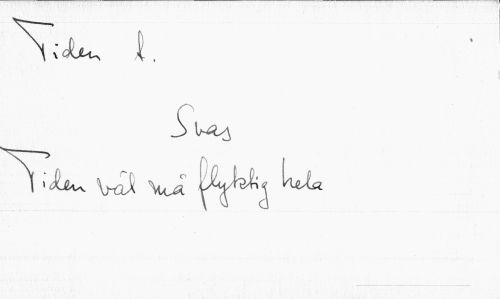 Tiden t.
Svas
Tiden väl må flyktig hela